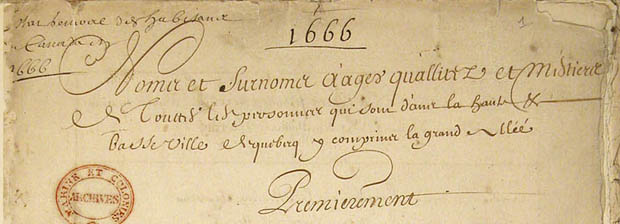 1666
1
Estat general des habitans
du Canada en
1666
Nomes et Surnomes d'ages quallitez et Mestieres
de Touttes les personnes qui sont dans la haute &
basse Ville de quebecq y comprines la grand Allée
Premierement
MARINE ET COLONIES
ARCHIVES